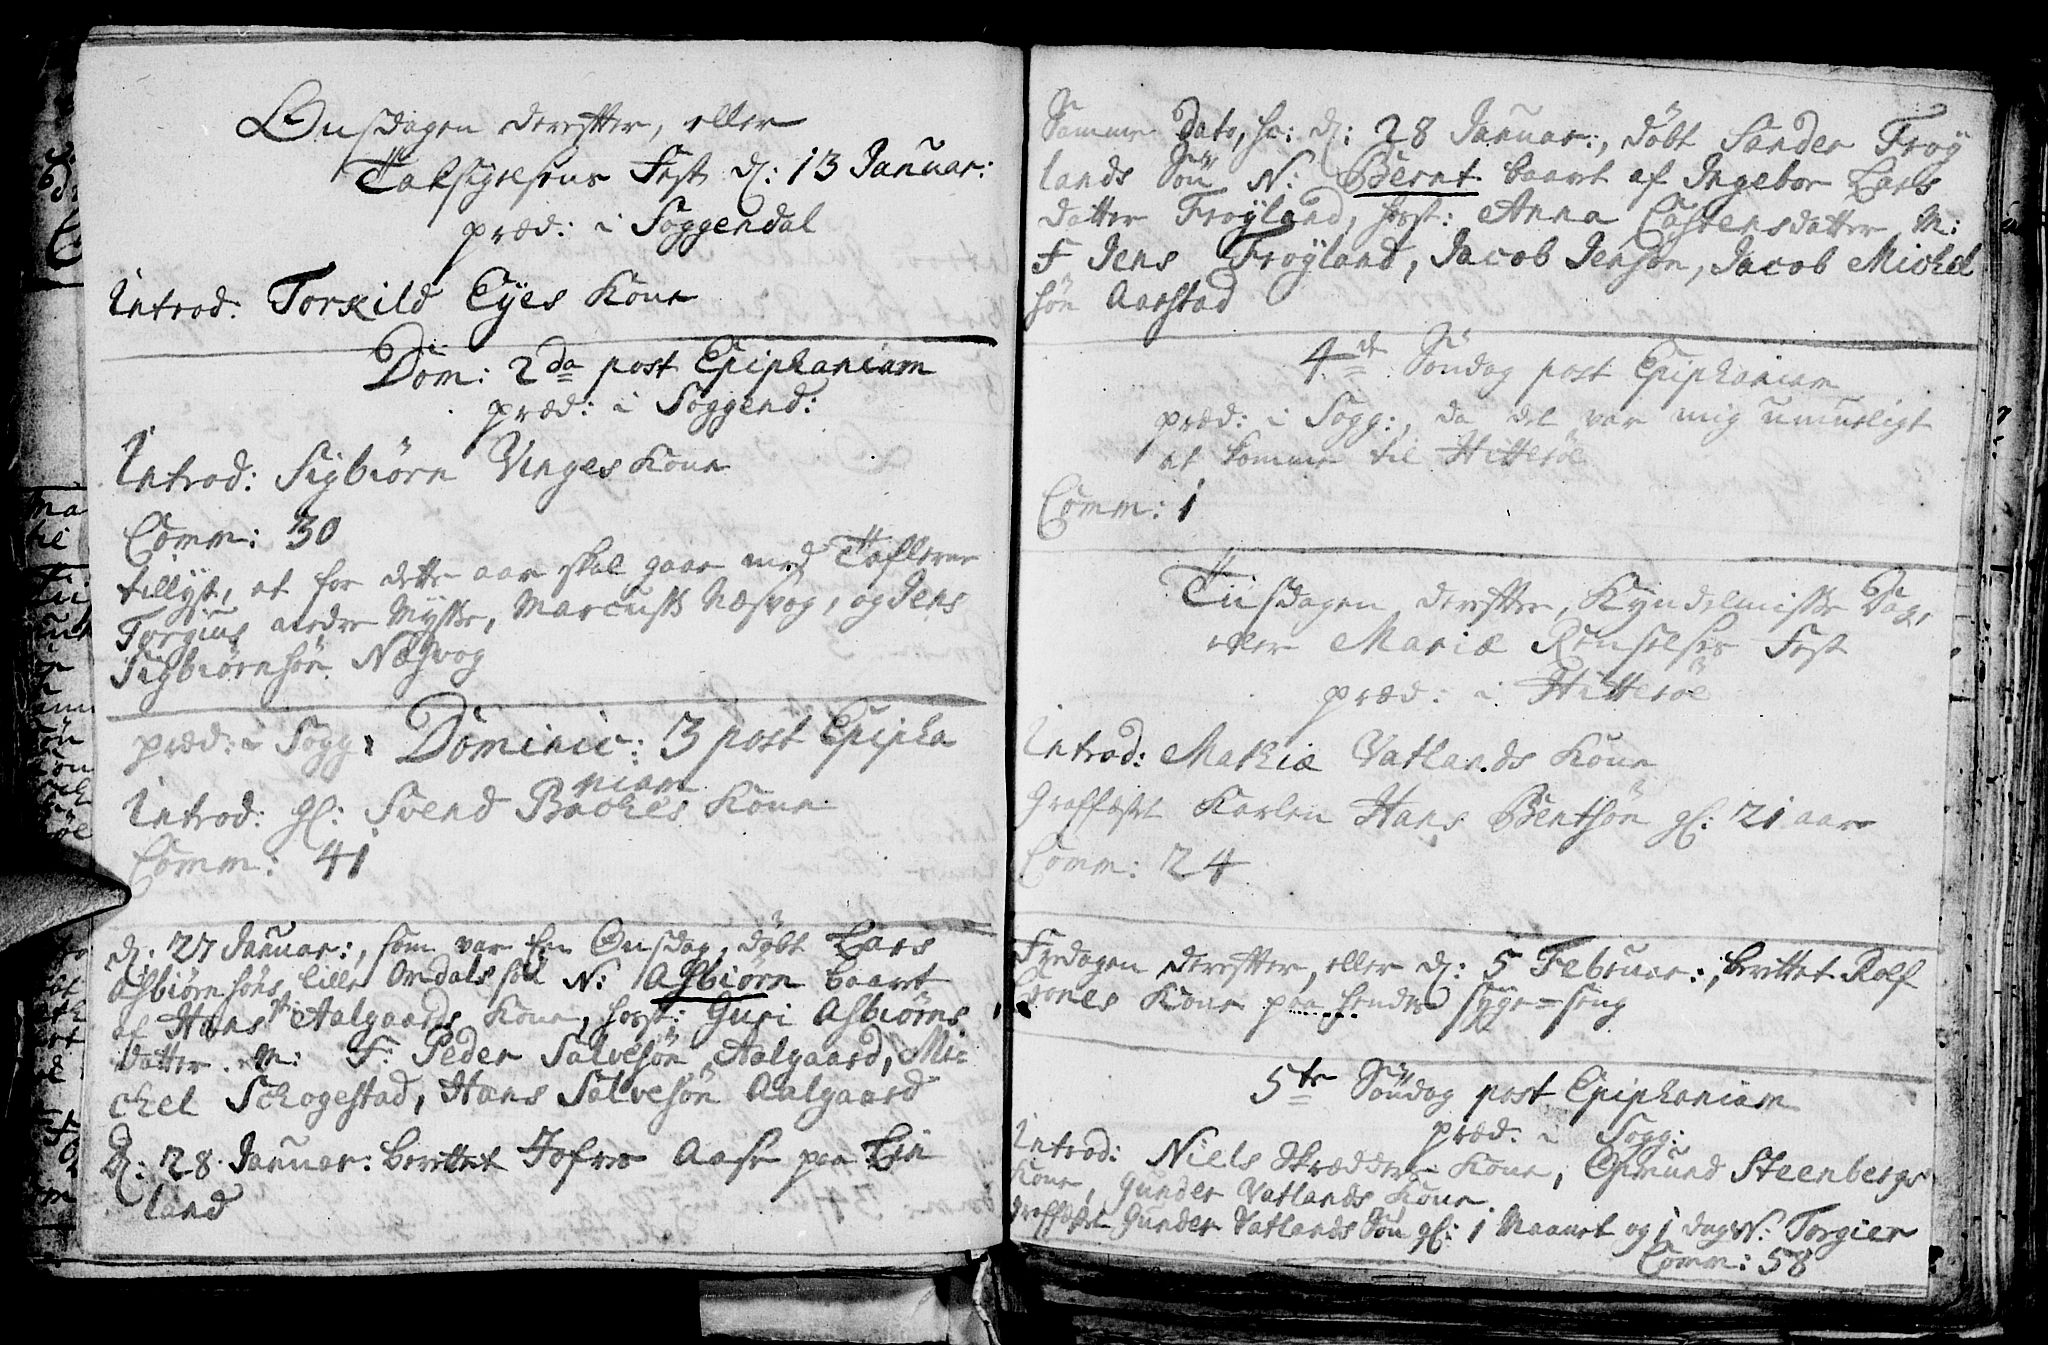 Onsdagen derefter, eller
Taksigelsens Fest d: 13 Januar:
præd: i Soggendal
Introd: Torkild Eyes Kone
Dom: 2da post Epiphaniam
præd: i Soggend:
Introd: Sigbiørn Vinges Kone
Comm: 30
tillyst, at for dette aar skal gaae med Taflerne
Torgius Mydske, Marcus Næsvog, og Jens
Sigbiørnsøn Næsvog
præd: i Sogg: Dominic: 3 post Epipha
niam
Introd: gl: Svend Backes Kone
Comm: 41
d: 27 Januar:, som var en Onsdag, døbt Lars
Asbiørnsøns lille Ordals søn N: Asbiørn baaret
af Hans Aalgaards Kone, host: Guri Asbiørns
datter. M: F: Peder Salvesøn Aalgaard, Mi
chel Schogestad, Hans Salvesøn Aalgaard
D: 28 Januar: berettet Jofre Aase paa Eie
land
Samme dato, sc: d: 28 Januar:, døbt Sander Frøy
lands Søn N: Bernt baaret af Ingebor Lars
datter Frøyland, host: Anna Castensdatter M:
F Jens Frøyland, Jacob Jensøn, Jacob Michel
søn Aarstad
4de Søndag post Epiphaniam
præd: i Sogg:, da det var mig umueligt
at komme til Hitterøe
Comm: 1
Tiisdagen derefter, Kyndelmisse Dag,
eller Mariæ Renselses Fest
præd: i Hitterøe
Introd: Mathiæ Vatlands Kone
Graffæstet Karlen Hans Berntsøn gl: 21 aar
Comm: 24
Fredagen derefter, eller d: 5 Februar:, berettet Rolf
Kone paa hendes syge=seng
5te Søndag post Epiphaniam
præd: i Sogg:
Introd: Niels Skrædder Kone, Osmund Steenbergs
Kone, Gunder Vatlands Kone
Graffæstet Gunder Vatlands Søn gl: 1 Maanet og 1 dag N: Torgier
Comm: 58